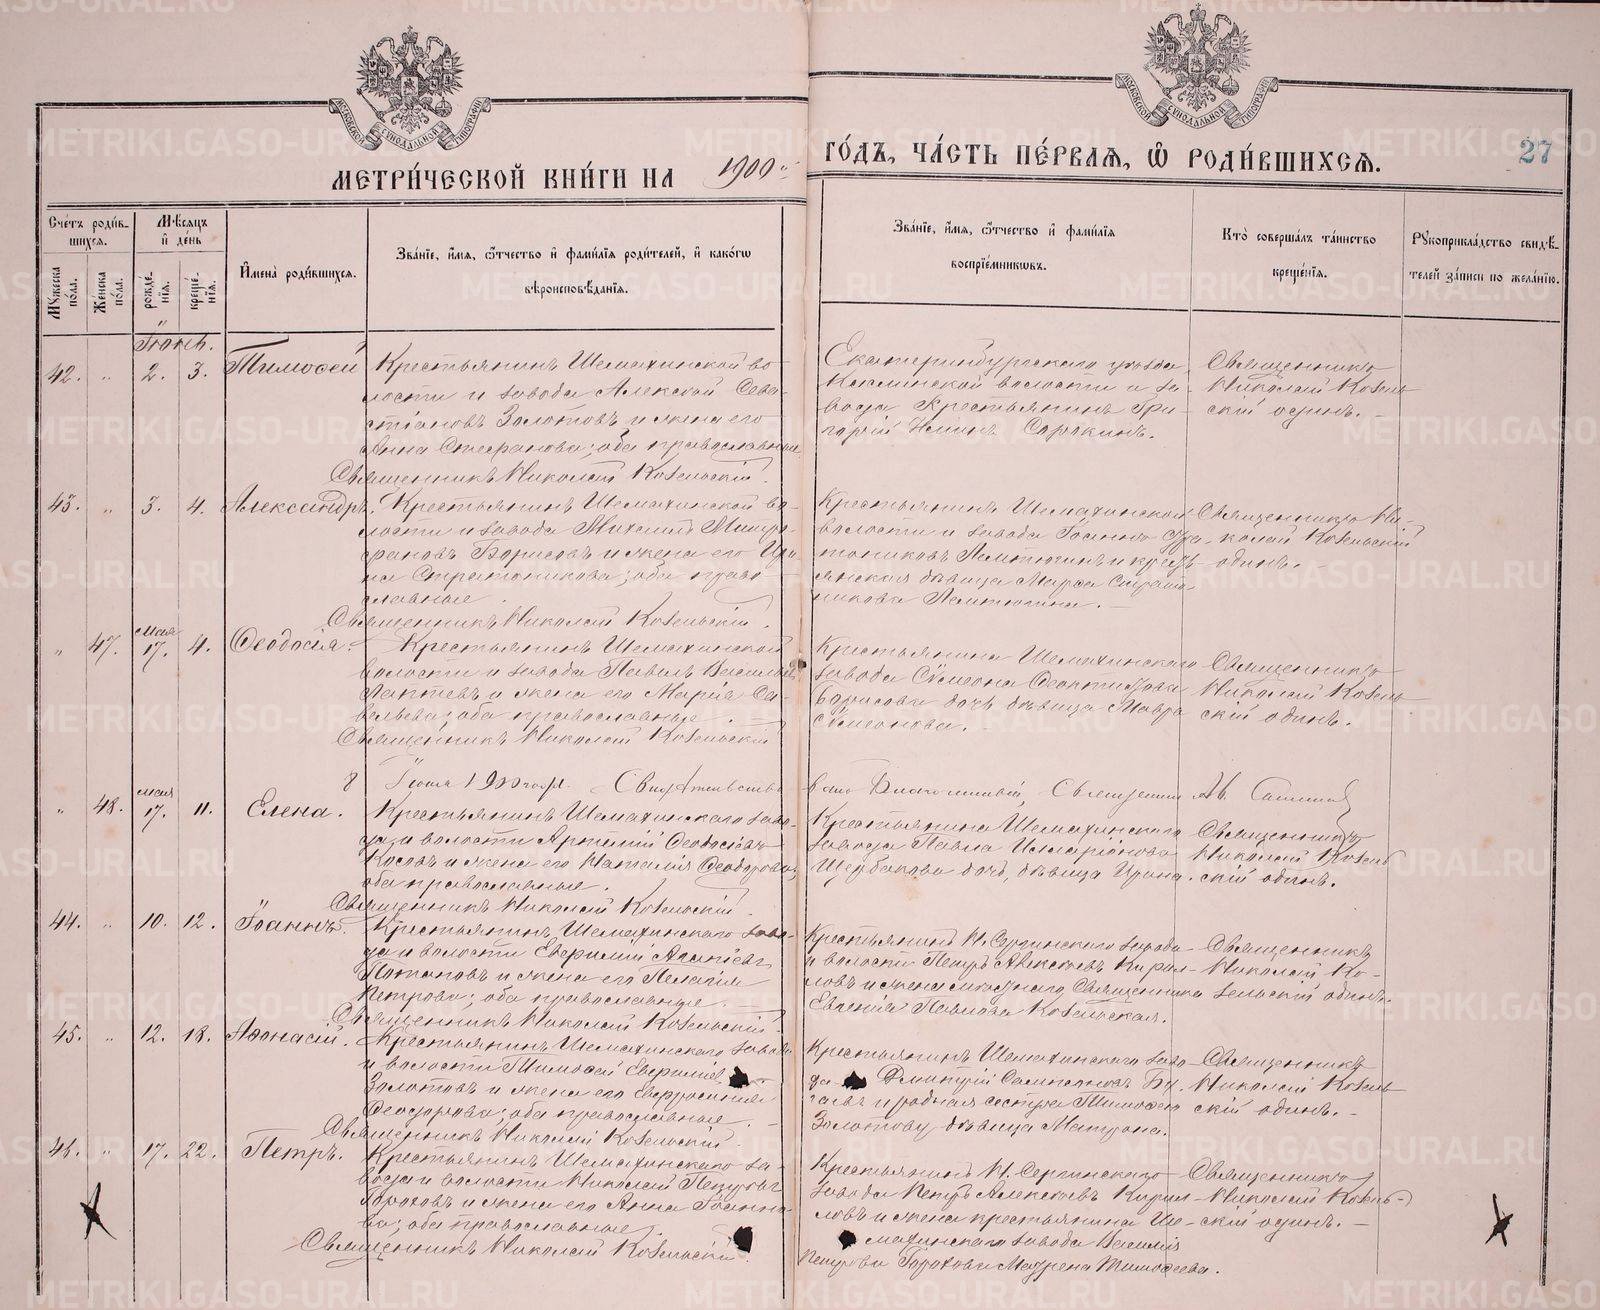 МОСКОВСКОЙ СѴНОДАЛЬНОЙ ТИПОГРАФІИ
МОСКОВСКОЙ СѴНОДАЛЬНОЙ ТИПОГРАФІИ
МЕТРИ́ЧЕСКОЙ КНИ́ГИ НА 1900 ГО́ДЪ, ЧА́СТЬ ПЕ́РВАЯ, Ѡ РОДИ́ВШИХСЯ.
27
Сче́тъ роди́вшихся.
Мѣ́сяцъ и҆ де́нь
Му́жеска по́ла.
Же́нска по́ла.
рожде́нїя.
креще́нїя.
И҆мена̀ роди́вшихся.
Зва́нїе, и҆́мя, ѻ҆́тчество и҆ фами́лїя роди́телей, и҆ како́гѡ
вѣроисповѣ́данїя.
Зва́нїе, и҆́мя, ѻ҆́тчество и҆ фами́лїя
воспрїе́мниковъ.
Кто̀ соверша́лъ та́инство
креще́нїя.
Рукоприкла́дство свидѣ́-
телей за́писи по жела́нїю.
Іюнь.
42. " 2. 3. Тимофей
Крестьянинъ Шемахинской во-
лости и завода Алексей Сева-
стіановъ Золотовъ и жена его
Анна Стефанова; оба православные
Священникъ Николай Козельскій.
Екатеринбургскаго уѣзда
волости и за-
вода Крестьянинъ Гри-
горій Сорокинъ.
Священникъ
Николай Козель-
скій одинъ.
43. " 3. 4. Александръ.
Крестьянинъ Шемахинской во-
лости и завода Михаилъ Митро-
фановъ Борисовъ и жена его Ири-
на Стратоникова; оба право-
славные.
Священникъ Николай Козельскій.
Крестьянинъ Шемахинской
волости и завода Іоаннъ Стра-
тониковъ и кресть-
янская дѣвица Марѳа Страто-
никова
Священникъ Ни-
колай Козельскій
одинъ.
" 47. мая 17. 4. Ѳеодосія.
Крестьянинъ Шемахинской
волости и завода Павелъ Васильевъ
Лаптевъ и жена его Марія Са-
вельева; оба православные.
Священникъ Николай Козельскій
Крестьянина Шемахинскаго
завода Сѵмеона Ѳеоктистова
Борисова дочь дѣвица Мавра
Сѵмеонова.
Священникъ
Николай Козель-
скій одинъ.
8 Іюня 1900 года. Свидѣтельство-
валъ Благочинный, Священникъ
" 48. мая 17. 11. Елена.
Крестьянинъ Шемахинскаго заво-
да и волости Артемій Ѳеодосіевъ
Косовъ и жена его Наталія Ѳеодорова;
оба православные.
Священникъ Николай Козельскій.
Крестьянина Шемахинскаго
завода Павла Илларіонова
Щербакова дочь, дѣвица Ирина.
Священникъ
Николай Козель-
скій одинъ.
44. " 10. 12. Іоаннъ.
Крестьянинъ Шемахинскаго заво-
да и волости Евѳимій
Потаповъ и жена его Пелагія
Петрова; оба православные.
Священникъ Николай Козельскій.
Крестьянинъ Н. Сергинскаго завода
и волости Петръ Алексѣевъ Кирил-
ловъ и жена Священника
Евгенія Павлова Козельская.
Священникъ
Николай Ко-
зельскій одинъ.
45. " 12. 18. Аѳанасій.
Крестьянинъ Шемахинскаго завода
и волости Тимофей Евѳиміев
Золотовъ и жена его Евфросинія
Ѳеодорова; оба православные.
Священникъ Николай Козельскій.
Крестьянинъ Шемахинскаго заво-
да Дмитрій Сампсоновъ Бу-
и родная сестра Тимофею
Золотову дѣвица Матрона.
Священникъ
Николай Козель-
скій одинъ.
46. " 17. 22. Петръ.
Крестьянинъ Шемахинскаго за-
вода и волости Николай Петровъ
Гороховъ и жена его Анна Іоанно-
ва; оба православные.
Священникъ Николай Козельскій
Крестьянинъ Н. Сергинскаго
завода Петръ Алексѣевъ Кирил-
ловъ и жена крестьянина Ше-
махинскаго завода Василія
Петрова Горохова Тимофеева.
Священникъ
Николай Козель-
скій одинъ.
METRIKI.GASO-URAL.RU